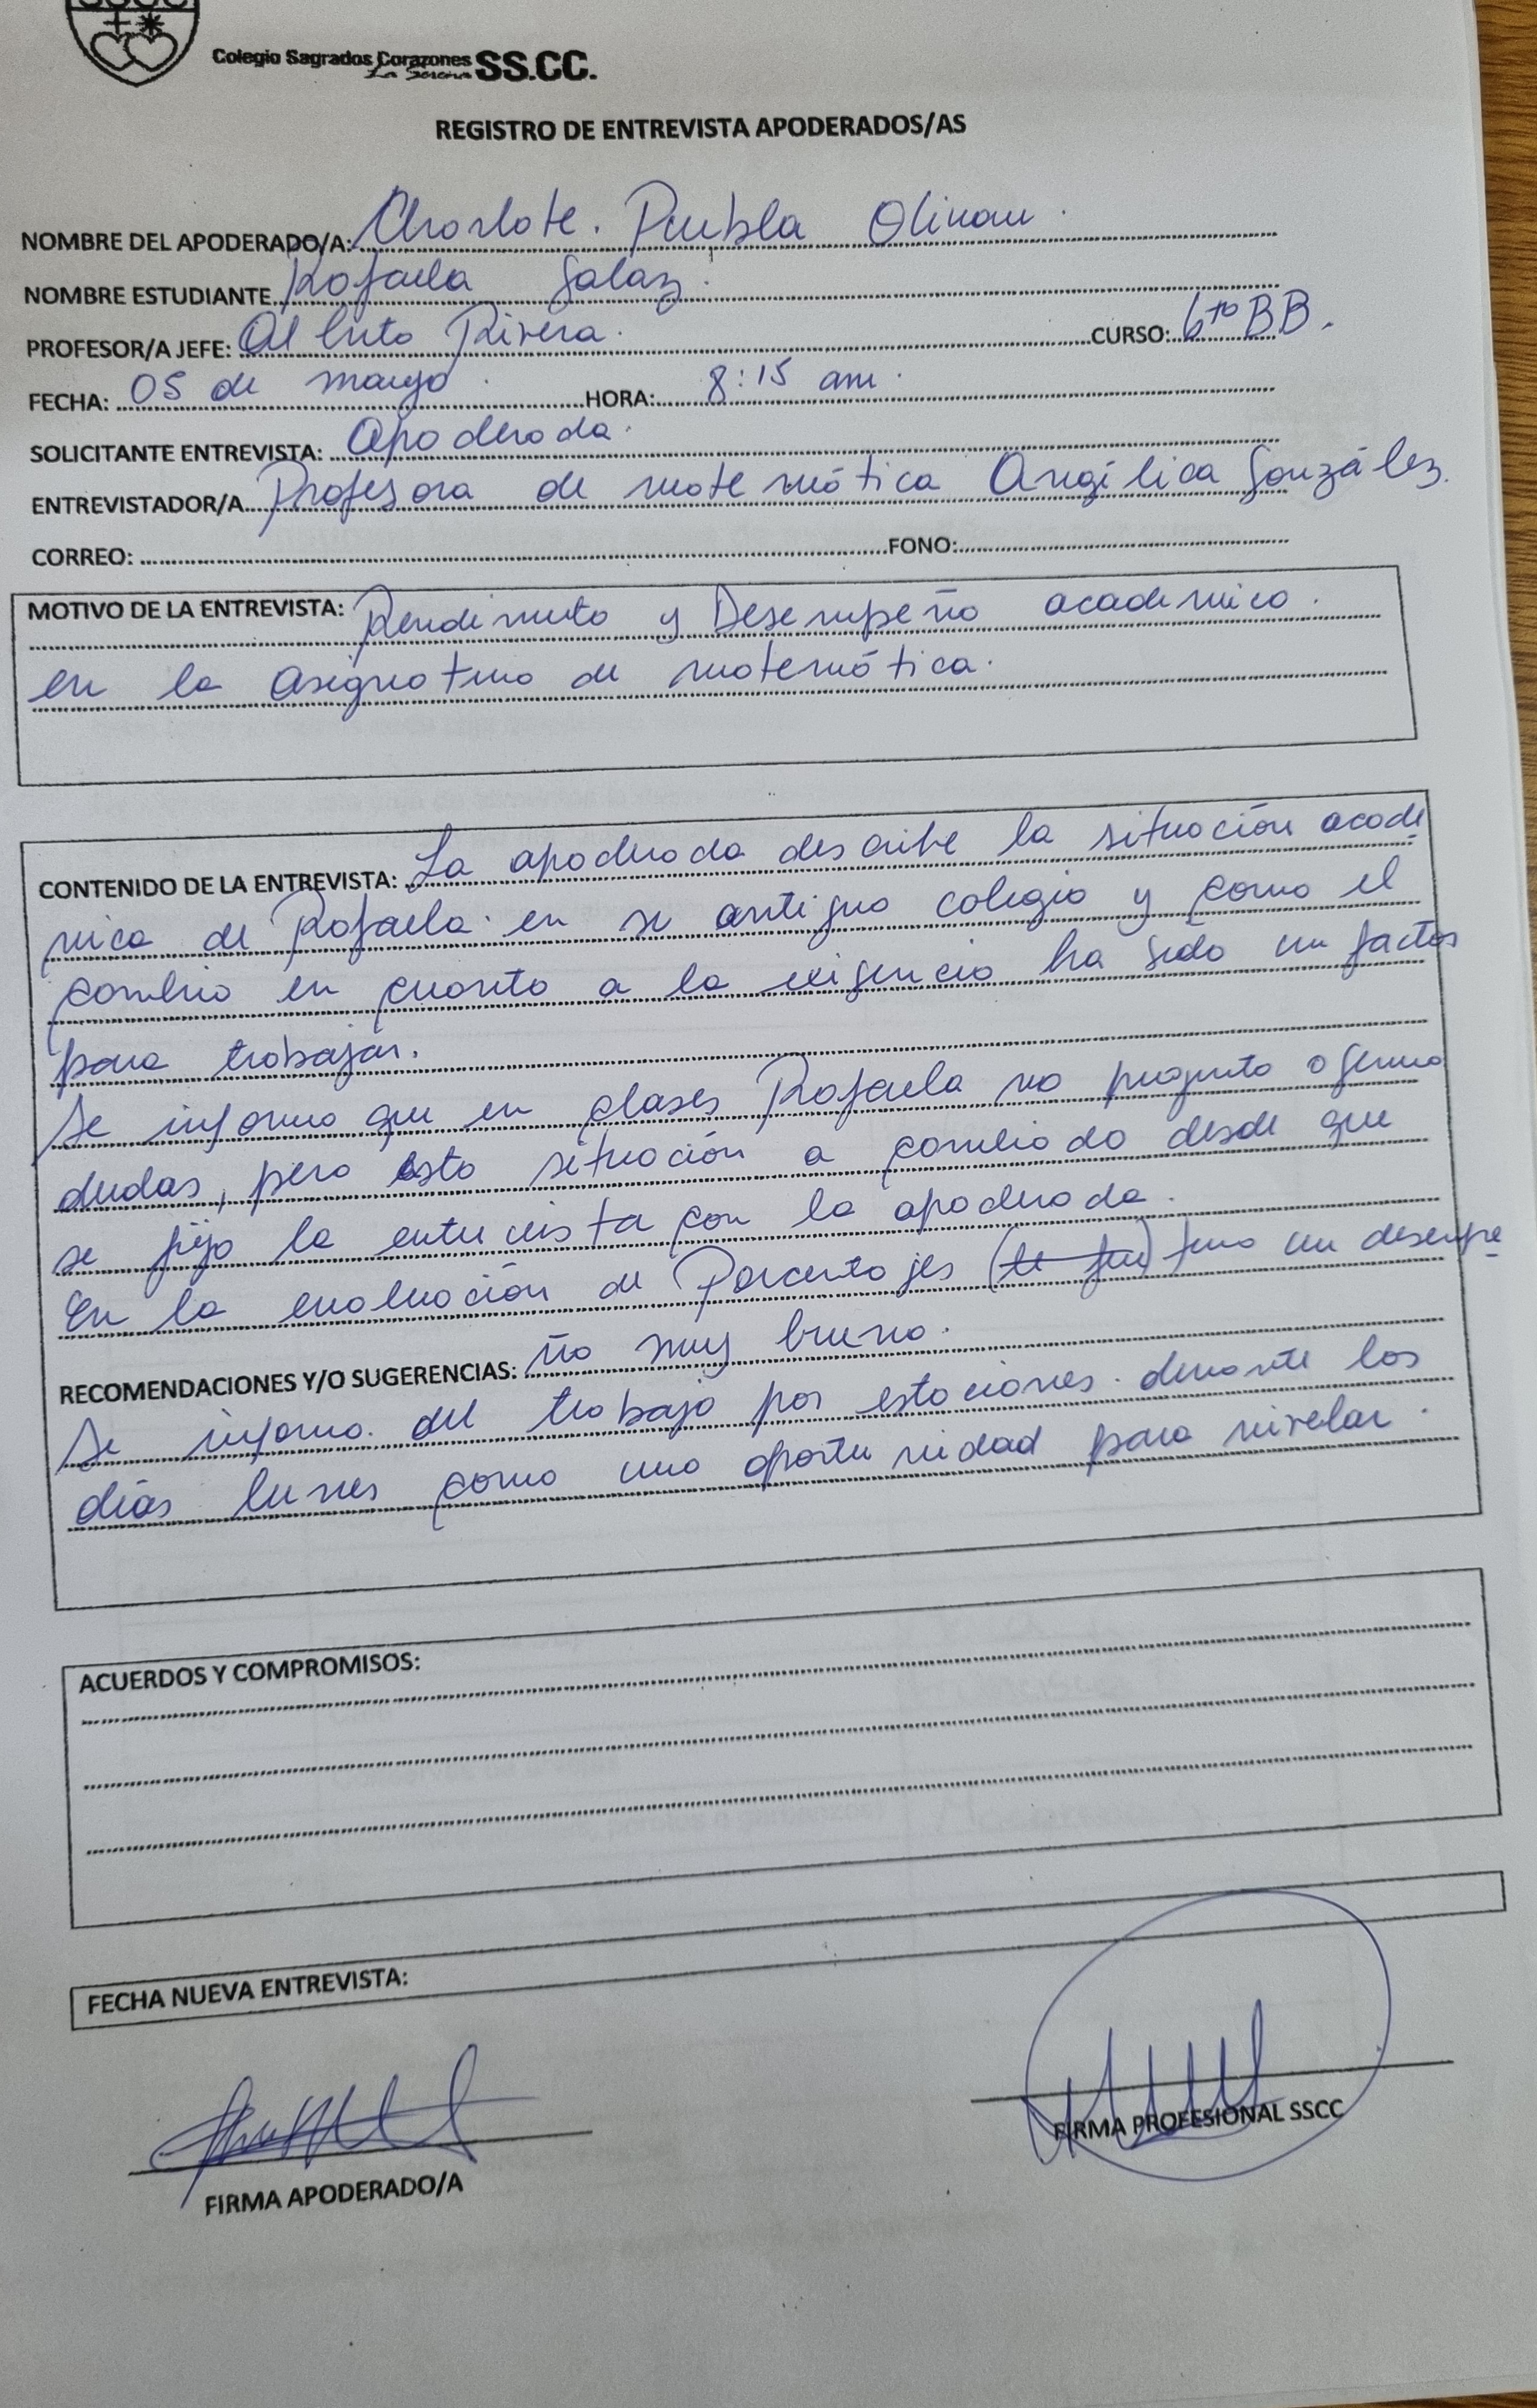 SSCC
Colegio Sagrados Corazones SS.CC.
La Serena
REGISTRO DE ENTREVISTA APODERADOS/AS
NOMBRE DEL APODERADO/A: Charlote. Puebla Olivares.
NOMBRE ESTUDIANTE Rafaela Galaz.
PROFESOR/A JEFE: Alberto Rivera. CURSO: 6to BB.
FECHA: 05 de mayo. HORA: 8:15 am.
SOLICITANTE ENTREVISTA: Apoderada.
ENTREVISTADOR/A Profesora de matemática Angélica González.
CORREO: FONO:
MOTIVO DE LA ENTREVISTA: Rendimiento y Desempeño académico.
en la asignatura de matemática.
CONTENIDO DE LA ENTREVISTA: La apoderada describe la situación acadé
mica de Rafaela en su antiguo colegio y como el
cambio en cuanto a la exigencia ha sido un factor
para trabajar.
Se informa que en clases Rafaela no pregunta o genera
dudas, pero esta situación a cambiado desde que
se fijo la entrevista con la apoderada.
En la evaluación de Porcentajes tuvo un desempe
RECOMENDACIONES Y/O SUGERENCIAS: ño muy bueno.
Se informa del trabajo por estaciones durante los
días lunes como una oportunidad para nivelar.
ACUERDOS Y COMPROMISOS:
FECHA NUEVA ENTREVISTA:
FIRMA PROFESIONAL SSCC
FIRMA APODERADO/A